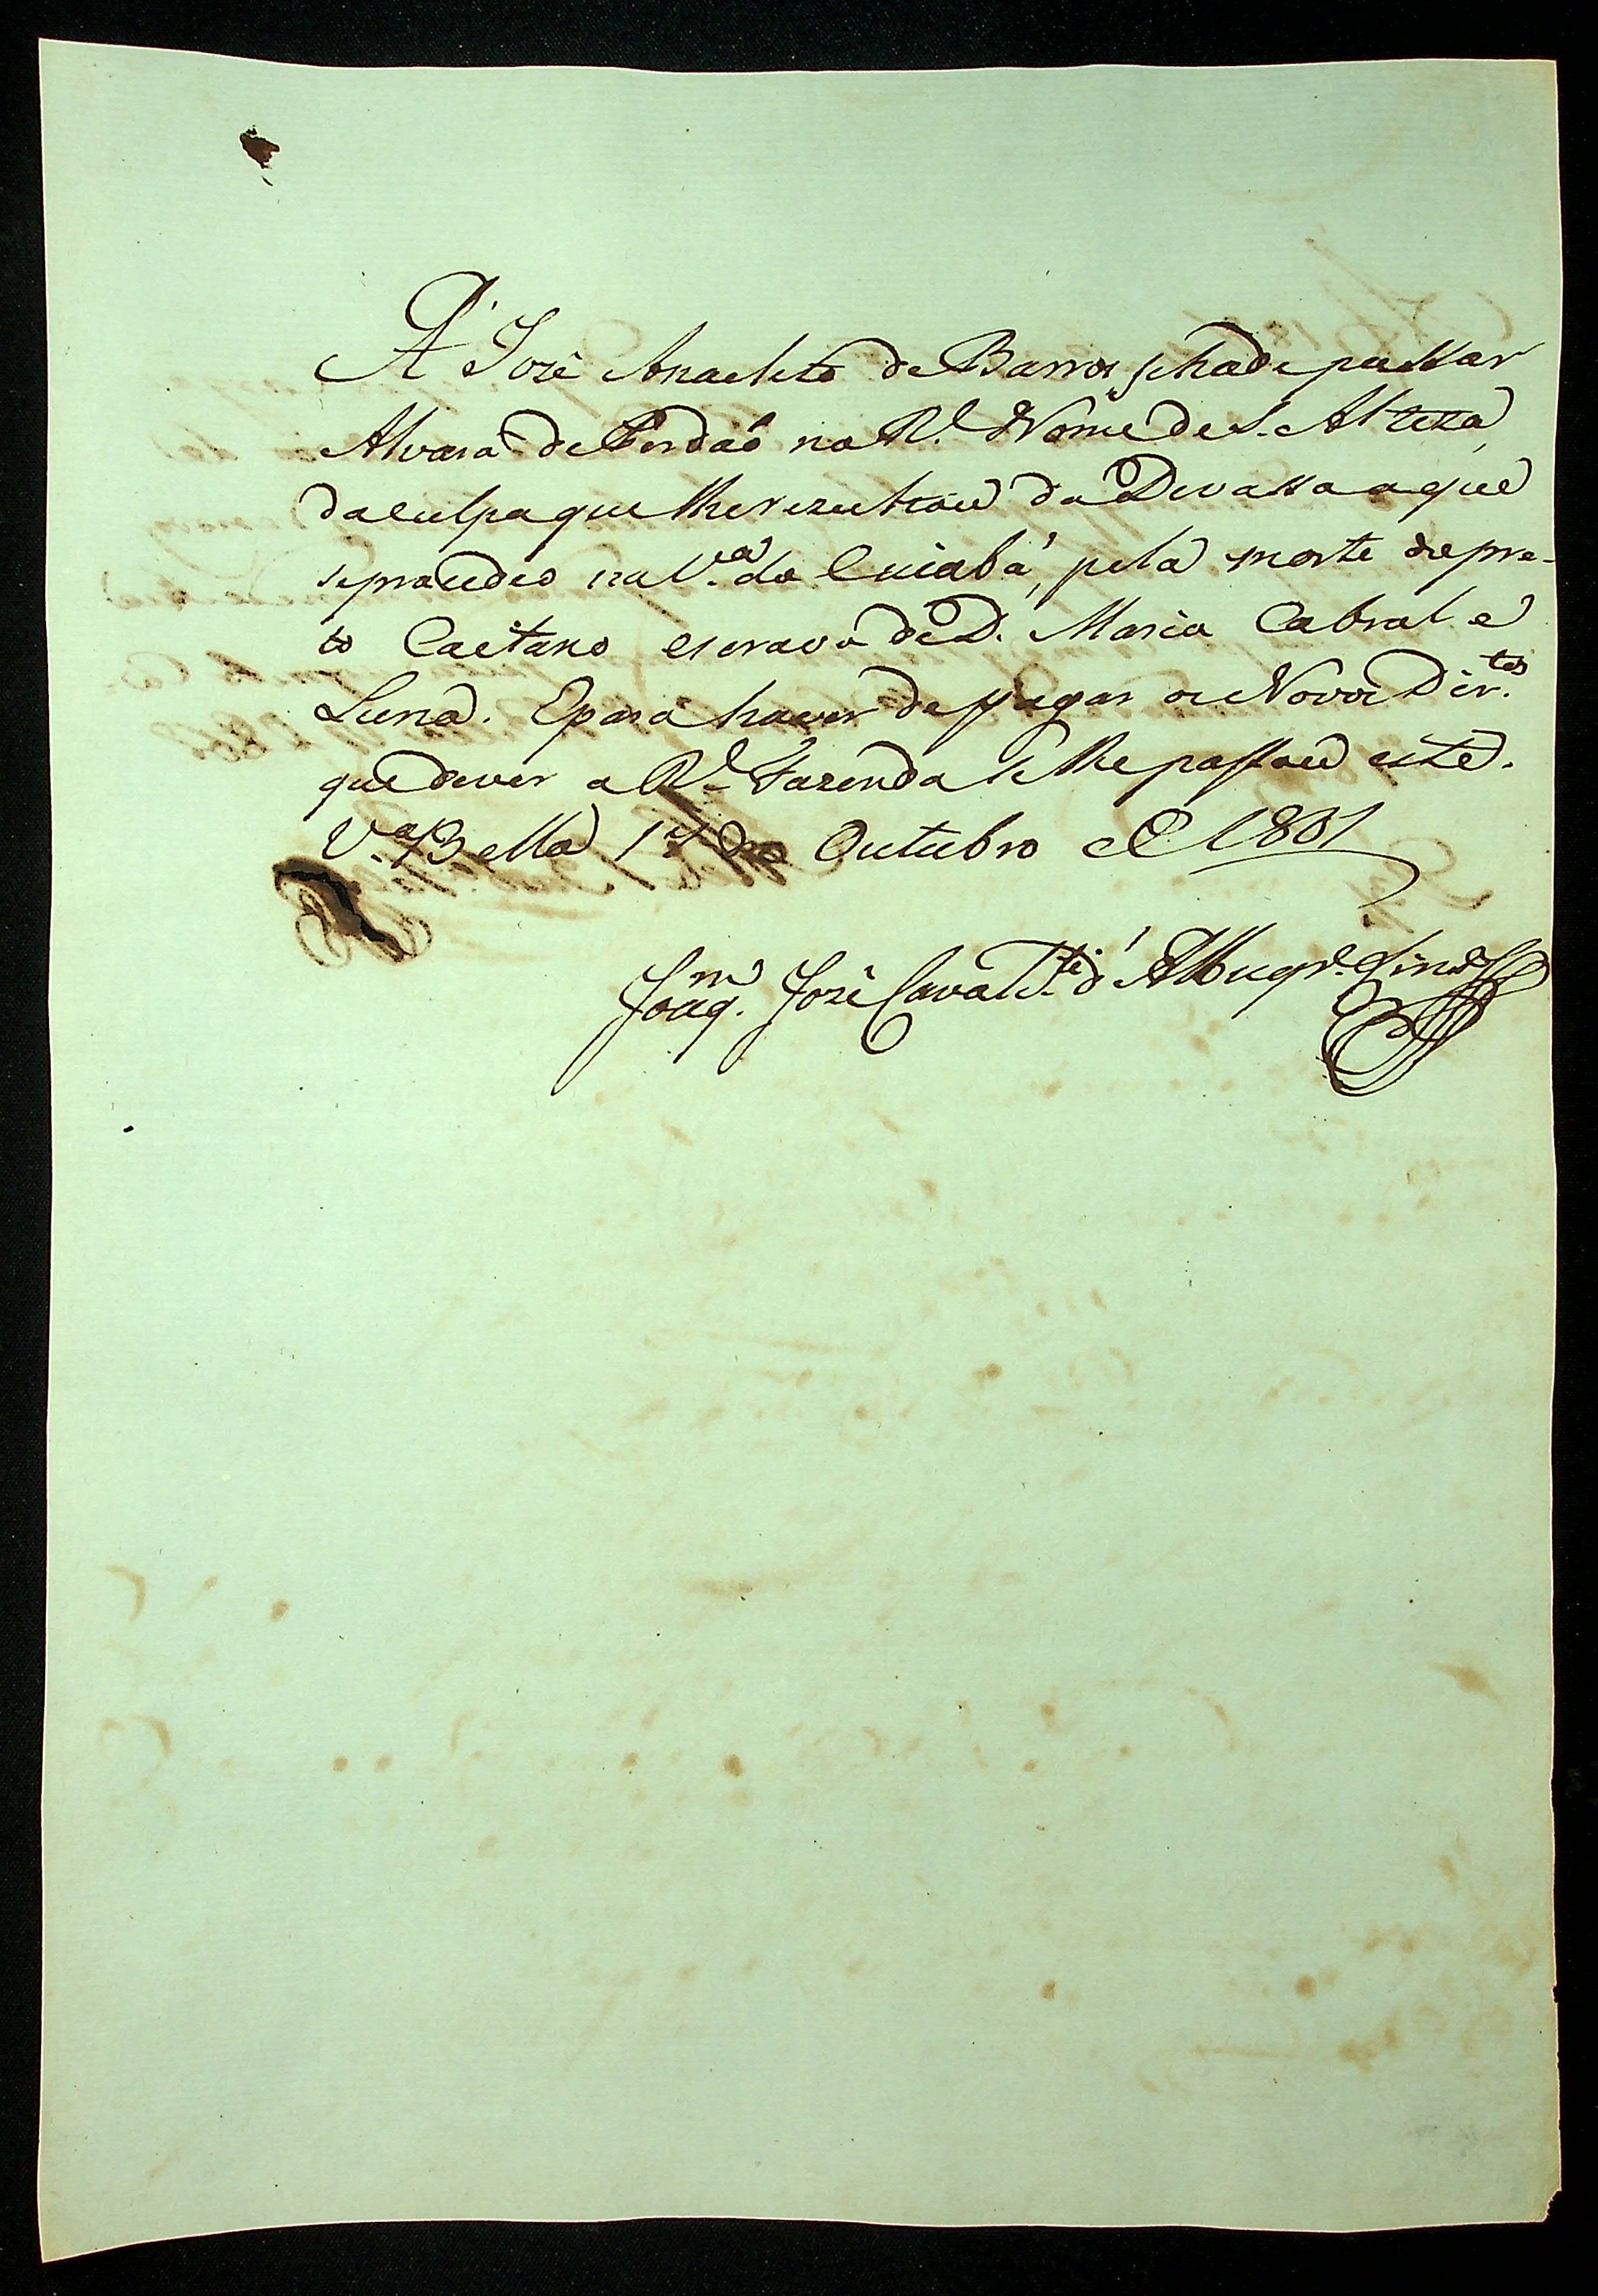 A' Jozé Anacleto de Barros se ha de passar
Alvará de Perdaõ no R.l Nome de S. Alteza,
da culpa que lhe rezultou da Devassa a que
se procedeo na V.a do Cuiabá, pela morte do pre-
to Caetano escravo de D. Maria Cabral e
Luna. E para haver de pagar os Novos Dir.tos
que dever a R.l Fazenda se lhe passou este.
V.a Bella 17 de Outubro de 1801
Joaq.m José Cavalc.ti d'Albuqr.e Lins